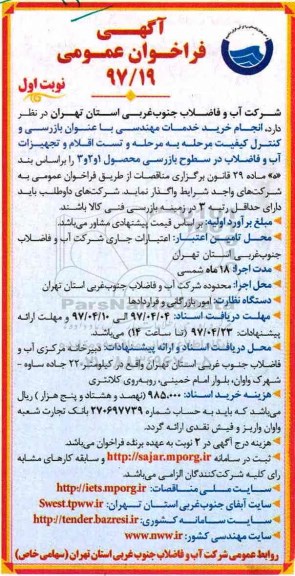 آگهی
فراخوان عمومی
۹۷/۱۹
نوبت اول
شرکت آب و فاضلاب جنوب‌غربی استان تهران در نظر
دارد، انجام خرید خدمات مهندسی با عنوان بازرسی و
کنترل کیفیت مرحله به مرحله و تست اقلام و تجهیزات
آب و فاضلاب در سطوح بازرسی محصول ۱و۲و۳ را براساس بند
«ه» ماده ۲۹ قانون برگزاری مناقصات از طریق فراخوان عمومی به
شرکت‌های واجد شرایط واگذار نماید. شرکت‌های داوطلب باید
دارای حداقل رتبه ۳ در زمینه بازرسی فنی کالا باشند.
مبلغ برآورد اولیه: براساس قیمت پیشنهادی مشاور می‌باشد.
محل تامین اعتبار: اعتبارات جاری شرکت آب و فاضلاب
جنوب‌غربی استان تهران
مدت اجرا: ۱۸ ماه شمسی
محل اجرا: محدوده شرکت آب و فاضلاب جنوب‌غربی استان تهران
دستگاه نظارت: امور بازرگانی و قراردادها
مهلت دریافت اسناد: ۹۷/۰۴/۰۴ الی ۹۷/۰۴/۱۰ و مهلت ارائه
پیشنهادات: ۹۷/۰۴/۲۳ (تا ساعت ۱۴) می‌باشد.
محل دریافت اسناد و ارائه پیشنهادات: دبیرخانه مرکزی آب و
فاضلاب جنوب غربی استان تهران واقع در کیلومتر ۲۲ جاده ساوه -
شهرک واوان، بلوار امام خمینی، روبه‌روی کلانتری
هزینه خرید اسناد: ۹۸۵،۰۰۰ (نهصد و هشتاد و پنج هزار) ریال
می‌باشد که باید به حساب شماره ۲۷۰۶۹۷۷۳۹ بانک تجارت شعبه
واوان واریز و فیش نقدی ارائه گردد.
هزینه درج آگهی در ۲ نوبت به عهده برنده فراخوان می‌باشد.
ثبت در سامانه http://sajar.mporg.ir و سابقه کارهای مشابه
رای کلیه شرکت‌کنندگان الزامی می‌باشد.
سایت ملی مناقصات: http://iets.mporg.ir
سایت آبفای جنوب‌غربی استان تهران: Swest.tpww.ir
سایت سامانه کشوری: http://tender.bazresi.ir
سایت مهندسی کشور: www.nww.ir
روابط عمومی شرکت آب و فاضلاب جنوب غربی استان تهران (سهامی خاص)